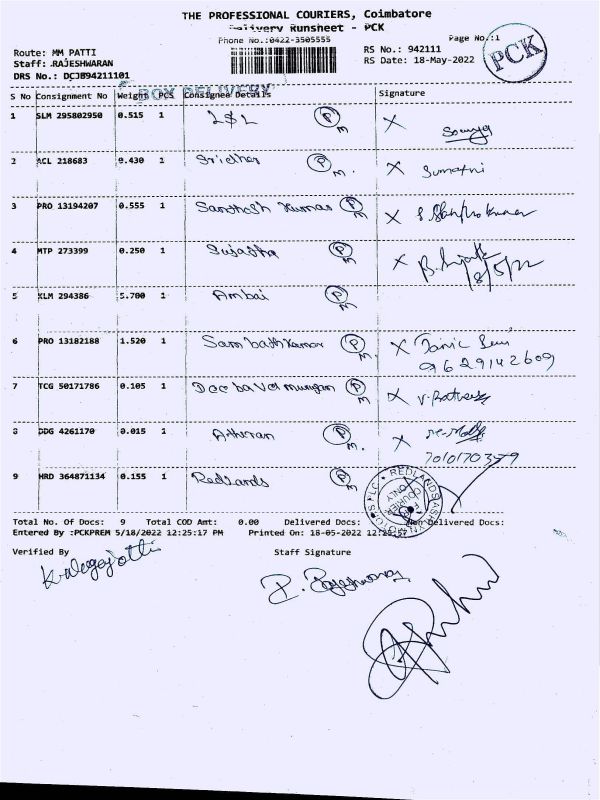 THE PROFESSIONAL COURIERS, Coimbatore
Delivery Runsheet - PCK
Phone No.:0422-3505555
Page No.:1
PCK
Route: MM PATTI
Staff: RAJESHWARAN
DRS No.: DCJB94211101
RS No.: 942111
RS Date: 18-May-2022
BOX DELIVERY
S No Consignment No Weight PCS Consignee Details Signature
1 SLM 295802950 0.515 1 L&L P M X Sowmya
2 ACL 218683 0.430 1 Sridher P M. X Sumathi
3 PRO 13194207 0.555 1 Santhosh Kumar P M X
4 MTP 273399 0.250 1 Sujatha P M X B. Sujatha
18/5/22
5 KLM 294386 5.700 1 Ambai P M
6 PRO 13182188 1.520 1 Sambathkumar P M. X
9629142609
7 TCG 50171786 0.105 1 P M X
8 DDG 4261170 0.015 1 P M. X
9 HRD 364871134 0.155 1 Redlands P M
REDLANDS ASHLYN
FOR COURIER ONLY
Total No. Of Docs: 9 Total COD Amt: 0.00 Delivered Docs: Non Delivered Docs:
Entered By :PCKPREM 5/18/2022 12:25:17 PM Printed On: 18-05-2022
Verified By Staff Signature